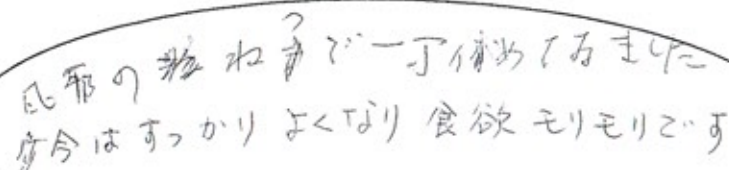 風邪の ねつで一 てゐました
今はすっかり よくなり 食欲 モリモリです